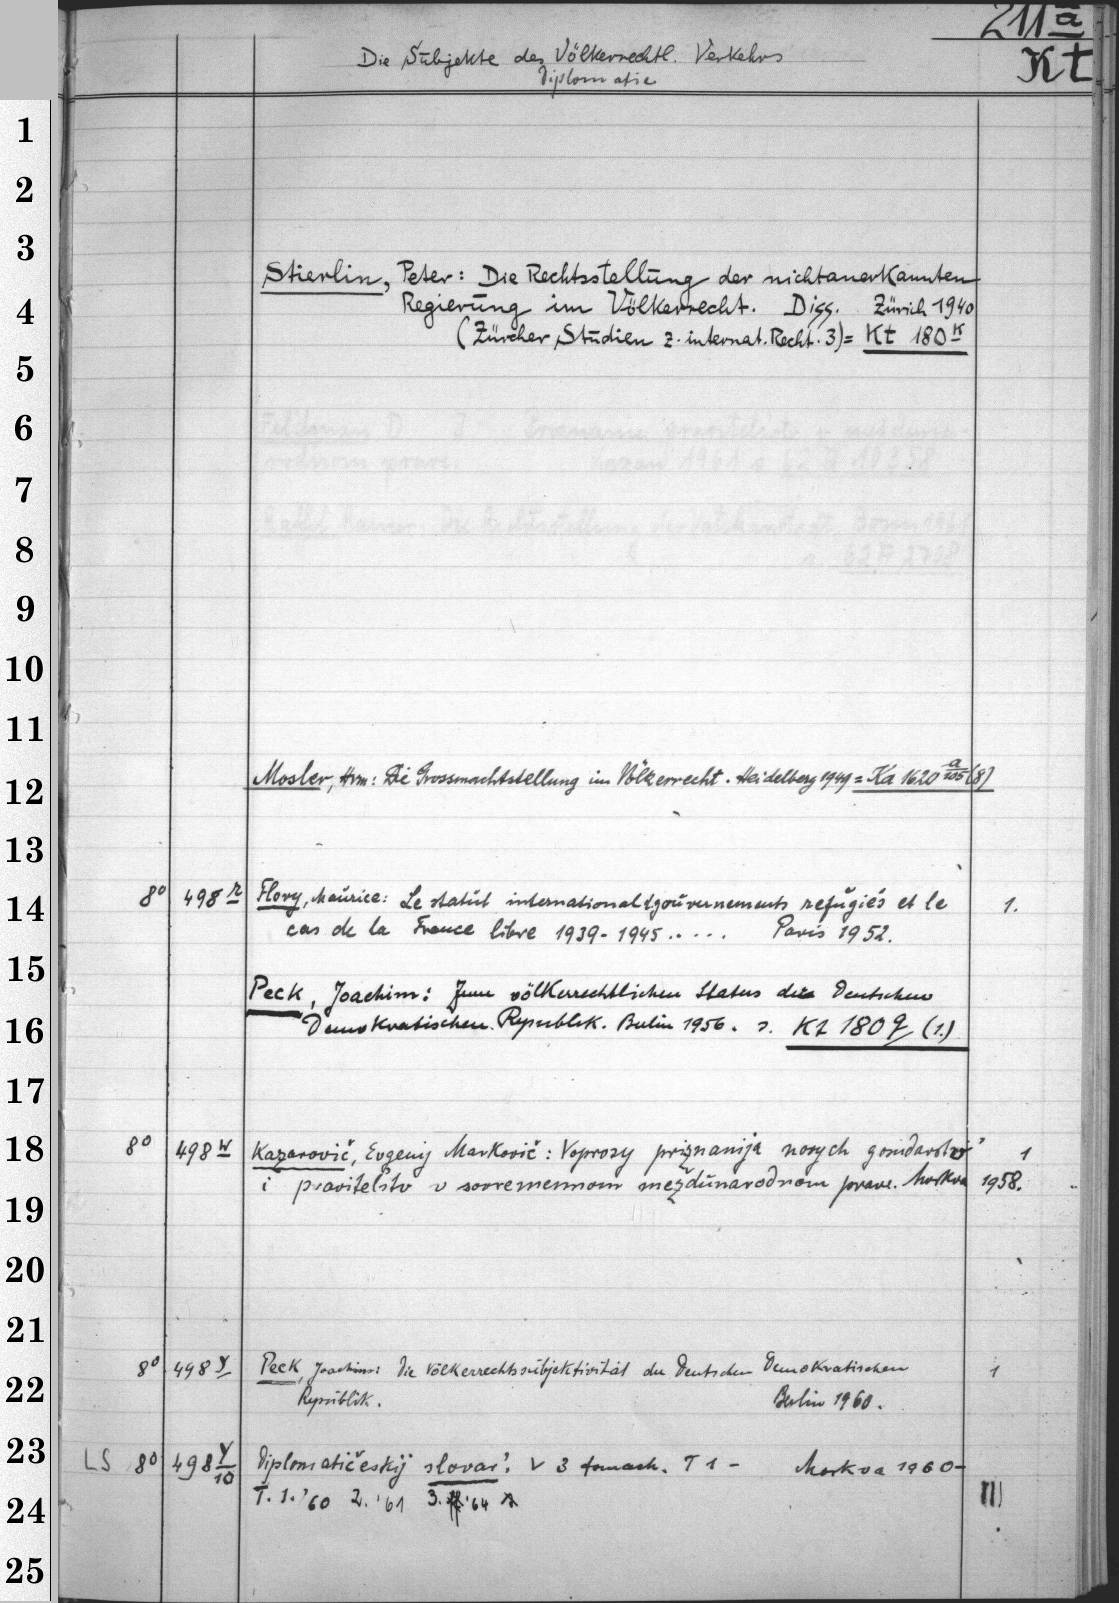 211a
Die Subjekte des Völkerrechtl. Verkehrs
Kt
Diplomatie
1
2
3
Stierlin, Peter: Die Rechtsstellung der nichtanerkannten
4
Regierung im Völkerrecht. Diss. Zürich 1940
(Zürcher Studien z. internat. Recht. 3) = Kt 180 K
5
6
7
8
9
10
11
Mosler, Hrm: Die Grossmachtstellung im Völkerrecht. Heidelberg 1949 = Ka 1620 a/105 (8)
12
13
8° 498 r Flory, Maurice: Le statut international d. gouvernements refugiés et le 1.
14
cas de la France libre 1939-1945..... Paris 1952.
15
Peck, Joachim: Zum völkerrechtlichen Status der Deutschen
16
Demokratischen Republik. Berlin 1956. s. Kt 180 q (1.)
17
18
8° 498 w Kazarovič, Evgenij Markovič: Voprosy priznanija novych gosudarstv 1
i pravitelstv v sovremennom meždunarodnom prave. Moskva 1958.
19
20
21
8° 498 y Peck, Joachim: Die Völkerrechtssubjektivität der Deutschen Demokratischen 1
22
Republik. Berlin 1960.
23
LS 8° 498 y/10 Diplomatičeskij slovar'. V 3 tomach. T 1 - Moskva 1960-
24
T. 1.'60 2.'61 3. '64 III
25